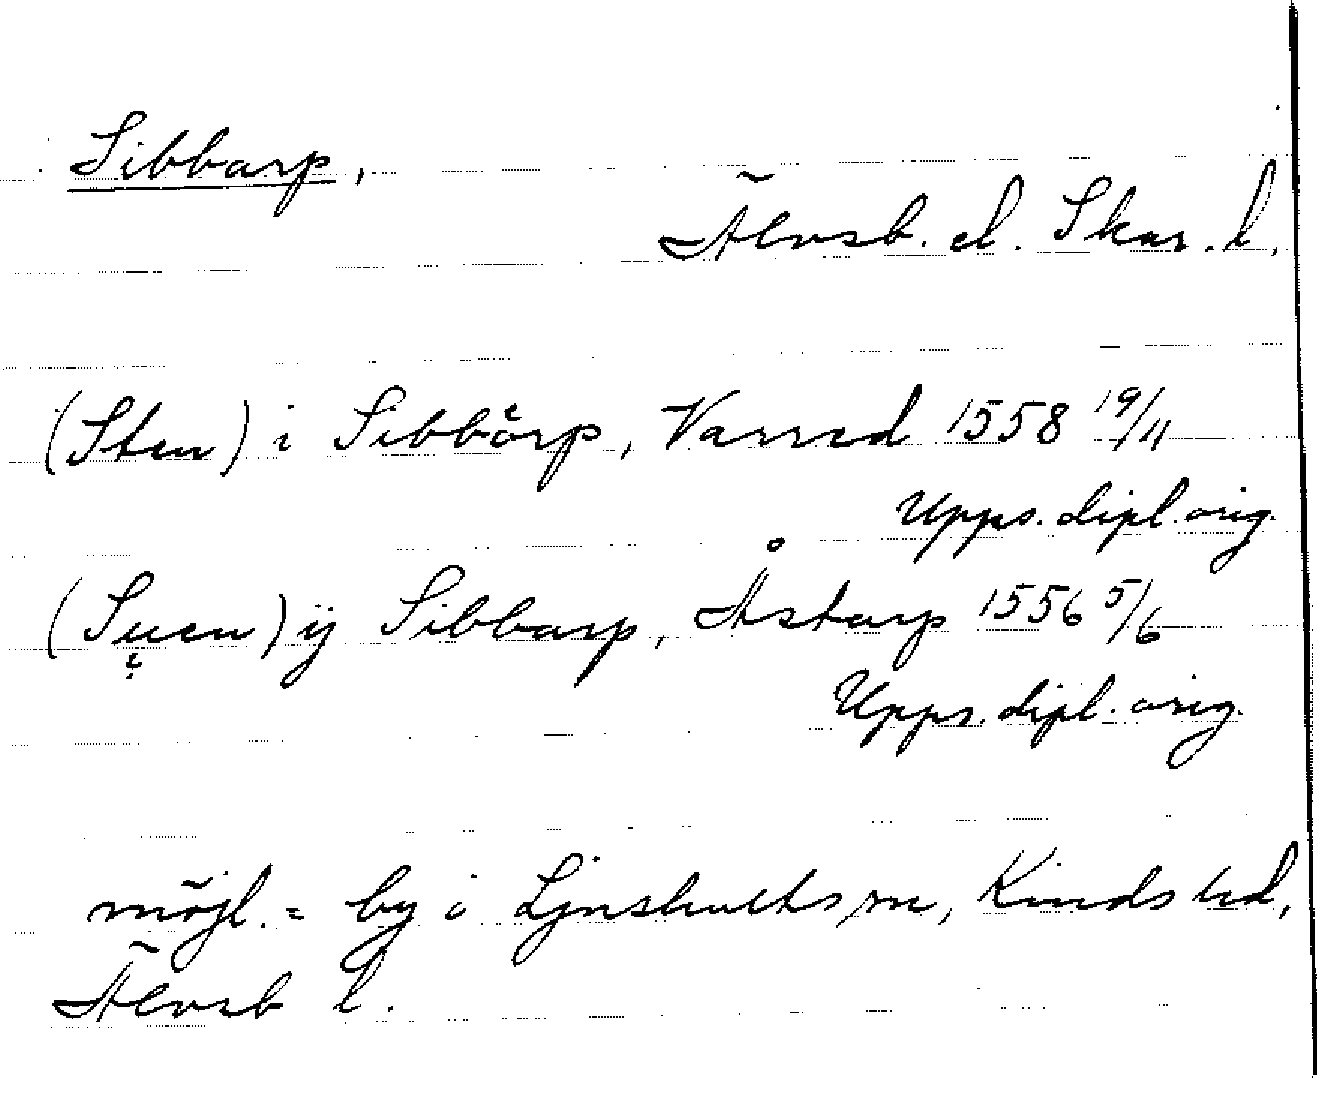 Sibbarp,
Älvsb. el. Skar. l.
(Sten) i Sibbörp, Varred 1558 19/11
Upps. dipl. orig.
(Suen) ij Sibbarp, Åstarp 1556 5/6
Upps. dipl. orig.
möjl. = by i Ljushults sn, Kinds hd,
Älvsb l.